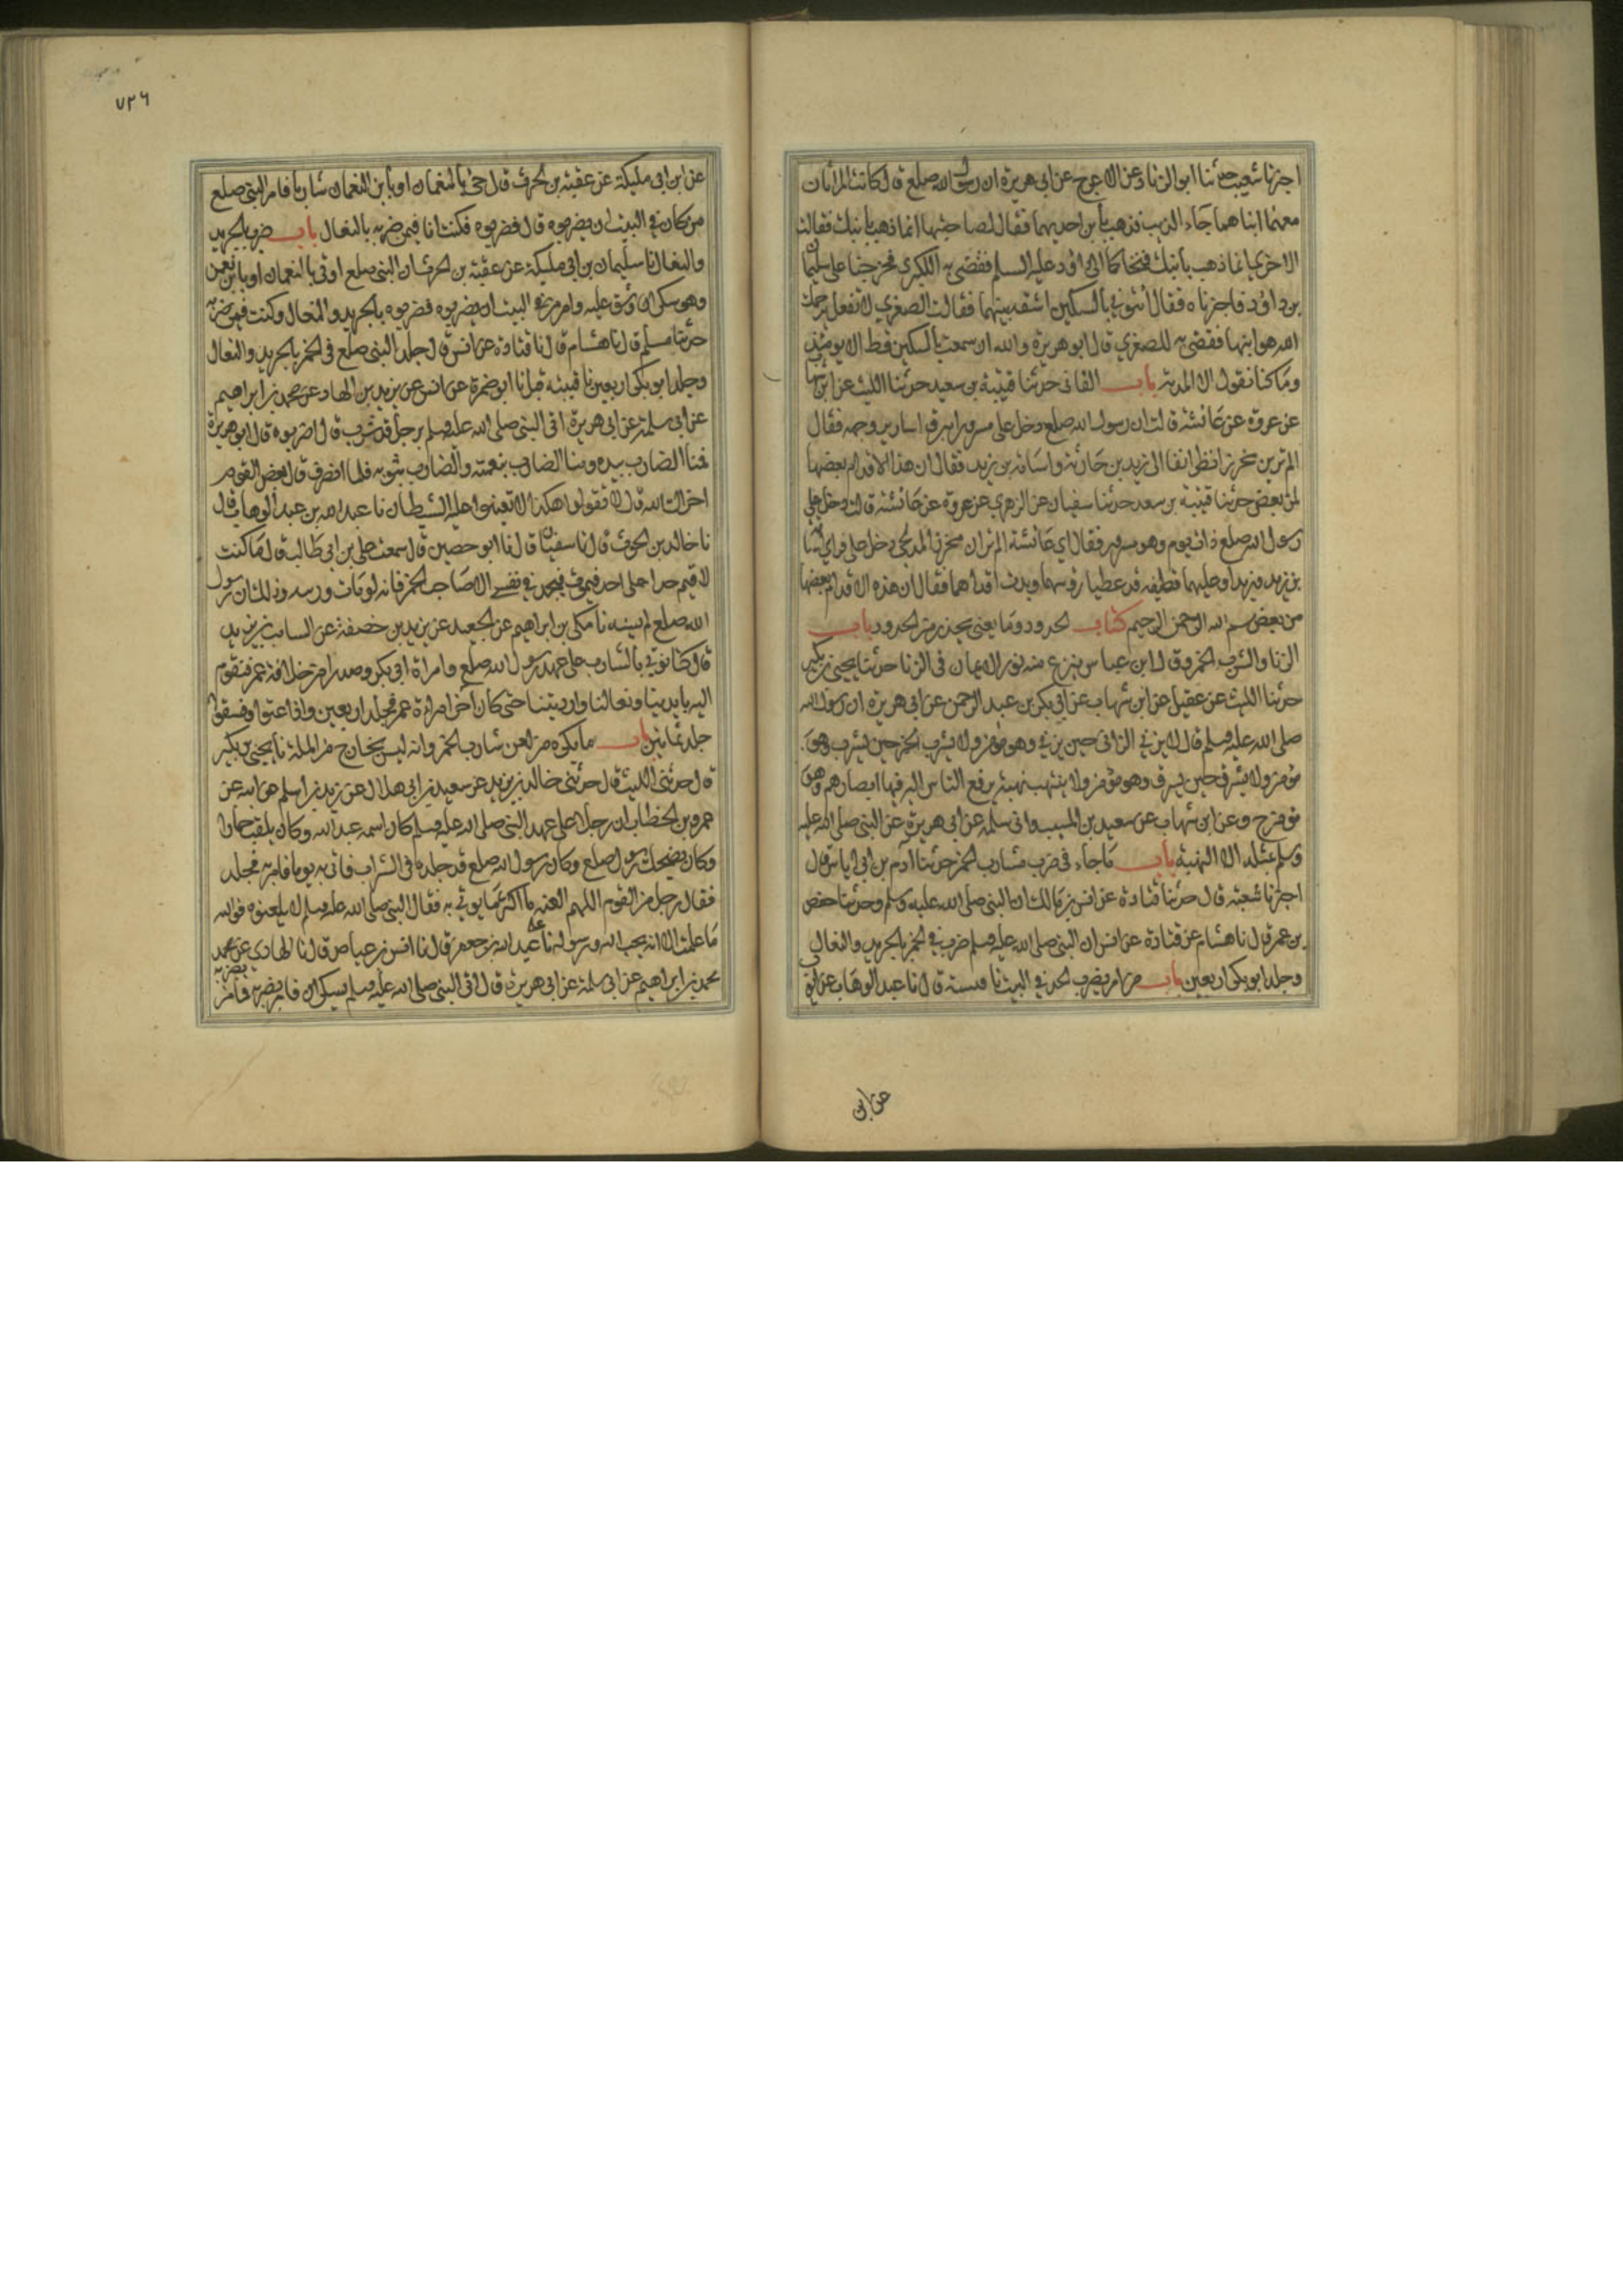 اخبرنا شعيب حدثنا ابو الزناد عن الاعرج عن ابي هريرة ان رسول الله صلعم قال كانت امراتان
معهما ابناهما جاء الذيب فذهب بابن احديهما فقال لصاحبتها انما ذهب بابنك فقالت
الاخرى انما ذهب بابنك فتحاكما الى داود عليه السلم فقضى به للكبرى فخرجتا على سليمان
بن داود فاخبرتاه فقال ائتوني بالسكين اشقه بينهما فقالت الصغرى لا تفعل يرحمك
الله هو ابنها فقضى به للصغرى قال ابو هريرة والله ان سمعت بالسكين قط الا يومئذ
وما كنا نقول الا المدية باب القائف حدثنا قتيبة بن سعيد حدثنا الليث عن ابن شهاب
عن عروة عن عائشة قالت ان رسول الله صلعم دخل على مسرورا تبرق اسارير وجهه فقال
الم ترين مجززا نظر انفا الى زيد بن حارثة واسامة بن زيد فقال ان هذا الاقدام بعضها
لمن بعض حدثنا قتيبة بن سعد حدثنا سفيان عن الزهري عن عروة عن عائشة قالت دخل علي
رسول الله صلعم ذات يوم وهو مسرور فقال اي عائشة الم تر ان مجززا المدلجي دخل علي فراى اسامة
بن زيد وزيدا وعليهما قطيفه قد غطيا رؤسهما وبدت اقدامهما فقال ان هذه الاقدام بعضها
من بعض بسم الله الرحمن الرحيم كتاب الحدود وما يعني يحذر من الحدود باب
الزنا والشرب الخمر وقال ابن عباس ينزع منه نور الايمان في الزنا حدثنا يحيى بن بكير
حدثنا الليث عن عقيل عن ابن شهاب عن ابي بكر بن عبد الرحمن عن ابي هريرة ان رسول الله
صلى الله عليه وسلم قال لا يزني الزاني حين يزني وهو مؤمن ولا يشرب الخمر حين يشرب وهو
مؤمن ولا يسرق حين يسرق وهو مؤمن ولا ينتهب نهبة يرفع الناس اليه فيها ابصارهم وهو
مؤمن ح وعن ابن شهاب عن سعيد بن المسيب وابي سلمة عن ابي هريرة عن النبي صلى الله عليه
وسلم بمثله الا النهبة باب ما جاء في ضرب شارب الخمر حدثنا آدم بن ابي اياس قال
اخبرنا شعبة قال حدثنا قتادة عن انس بن مالك ان النبي صلى الله عليه وسلم وحدثنا حفص
بن عمر قال نا هشام عن قتادة عن انس ان النبي صلى الله عليه وسلم ضرب في الخمر بالجريد والنعال
وجلد ابو بكر اربعين باب من امر بضرب الحد في البيت نا قتيبة قال نا عبد الوهاب عن ايوب
عن ابن
٧٢٦
عن ابن ابي مليكة عن عقبة بن الحرث قال جئ بالنعمان او بابن النعمان شاربا فامر النبي صلعم
من كان في البيت ان يضربوه قال فضربوه فكنت انا فيمن ضربه بالنعال باب ضرب بالجريد
والنعال نا سليمان بن ابي مليكة عن عقبة بن الحرث ان النبي صلعم اوتي بالنعمان او بابن نعمن
وهو سكران وشق عليه وامر من في البيت ان يضربوه فضربوه بالجريد والنعال وكنت فيمن ضربه
حدثنا مسلم قال نا هشام قال نا قتادة عن انس قال جلد النبي صلعم في الخمر بالجريد والنعال
وجلد ابو بكر اربعين نا قتيبة قال نا ابو ضمرة عن انس عن يزيد بن الهاد عن محمد بن ابراهيم
عن ابي سلمة عن ابي هريرة اتى النبي صلى الله عليه وسلم برجل قد شرب قال اضربوه قال ابو هريرة
فمنا الضارب بيده ومنا الضارب بنعله والضارب بثوبه فلما انصرف قال بعض القوم
اخزاك الله قال لا تقولوا هكذا لا تعينوا عليه الشيطان نا عبد الله بن عبد الوهاب قال
نا خالد بن الحرث قال نا سفيان قال نا ابو حصين قال سمعت علي بن ابي طالب قال ما كنت
لاقيم حدا على احد فيموت فيجد في نفسي الا صاحب الخمر فانه لو مات وديته وذلك ان رسول
الله صلعم لم يسنه نا مكي بن ابراهيم عن الجعيد عن يزيد بن خصفة عن السايب بن يزيد
قال كنا نوتي بالشارب على عهد رسول الله صلعم وامراة ابي بكر وصدرا من خلافة عمر فنقوم
اليه بايدينا ونعالنا وارديتنا حتى كان آخر امراة عمر فجلد اربعين واذا عتوا وفسقوا
جلد ثمانين باب ما يكره من لعن شارب الخمر وانه ليس بخارج من الملة نا يحيى بن بكير
قال حدثني الليث قال حدثني خالد بن يزيد عن سعيد بن ابي هلال عن زيد بن اسلم عن ابيه عن
عمر بن الخطاب ان رجلا على عهد النبي صلى الله عليه وسلم كان اسمه عبد الله وكان يلقب حمارا
وكان يضحك رسول صلعم وكان رسول الله صلعم قد جلده في الشراب فاتي به يوما فامر به فجلد
فقال رجل من القوم اللهم العنه ما اكثر ما يوتي به فقال النبي صلى الله عليه وسلم لا يلعنوه فوالله
ما علمت الا انه يحب الله ورسوله نا علي عبد الله بن جعفر قال نا انس بن عياض قال نا الهادي عن محمد
محمد بن ابراهيم عن ابي سلمة عن ابي هريرة قال اتى النبي صلى الله عليه وسلم بسكران فامر بضربه فامر